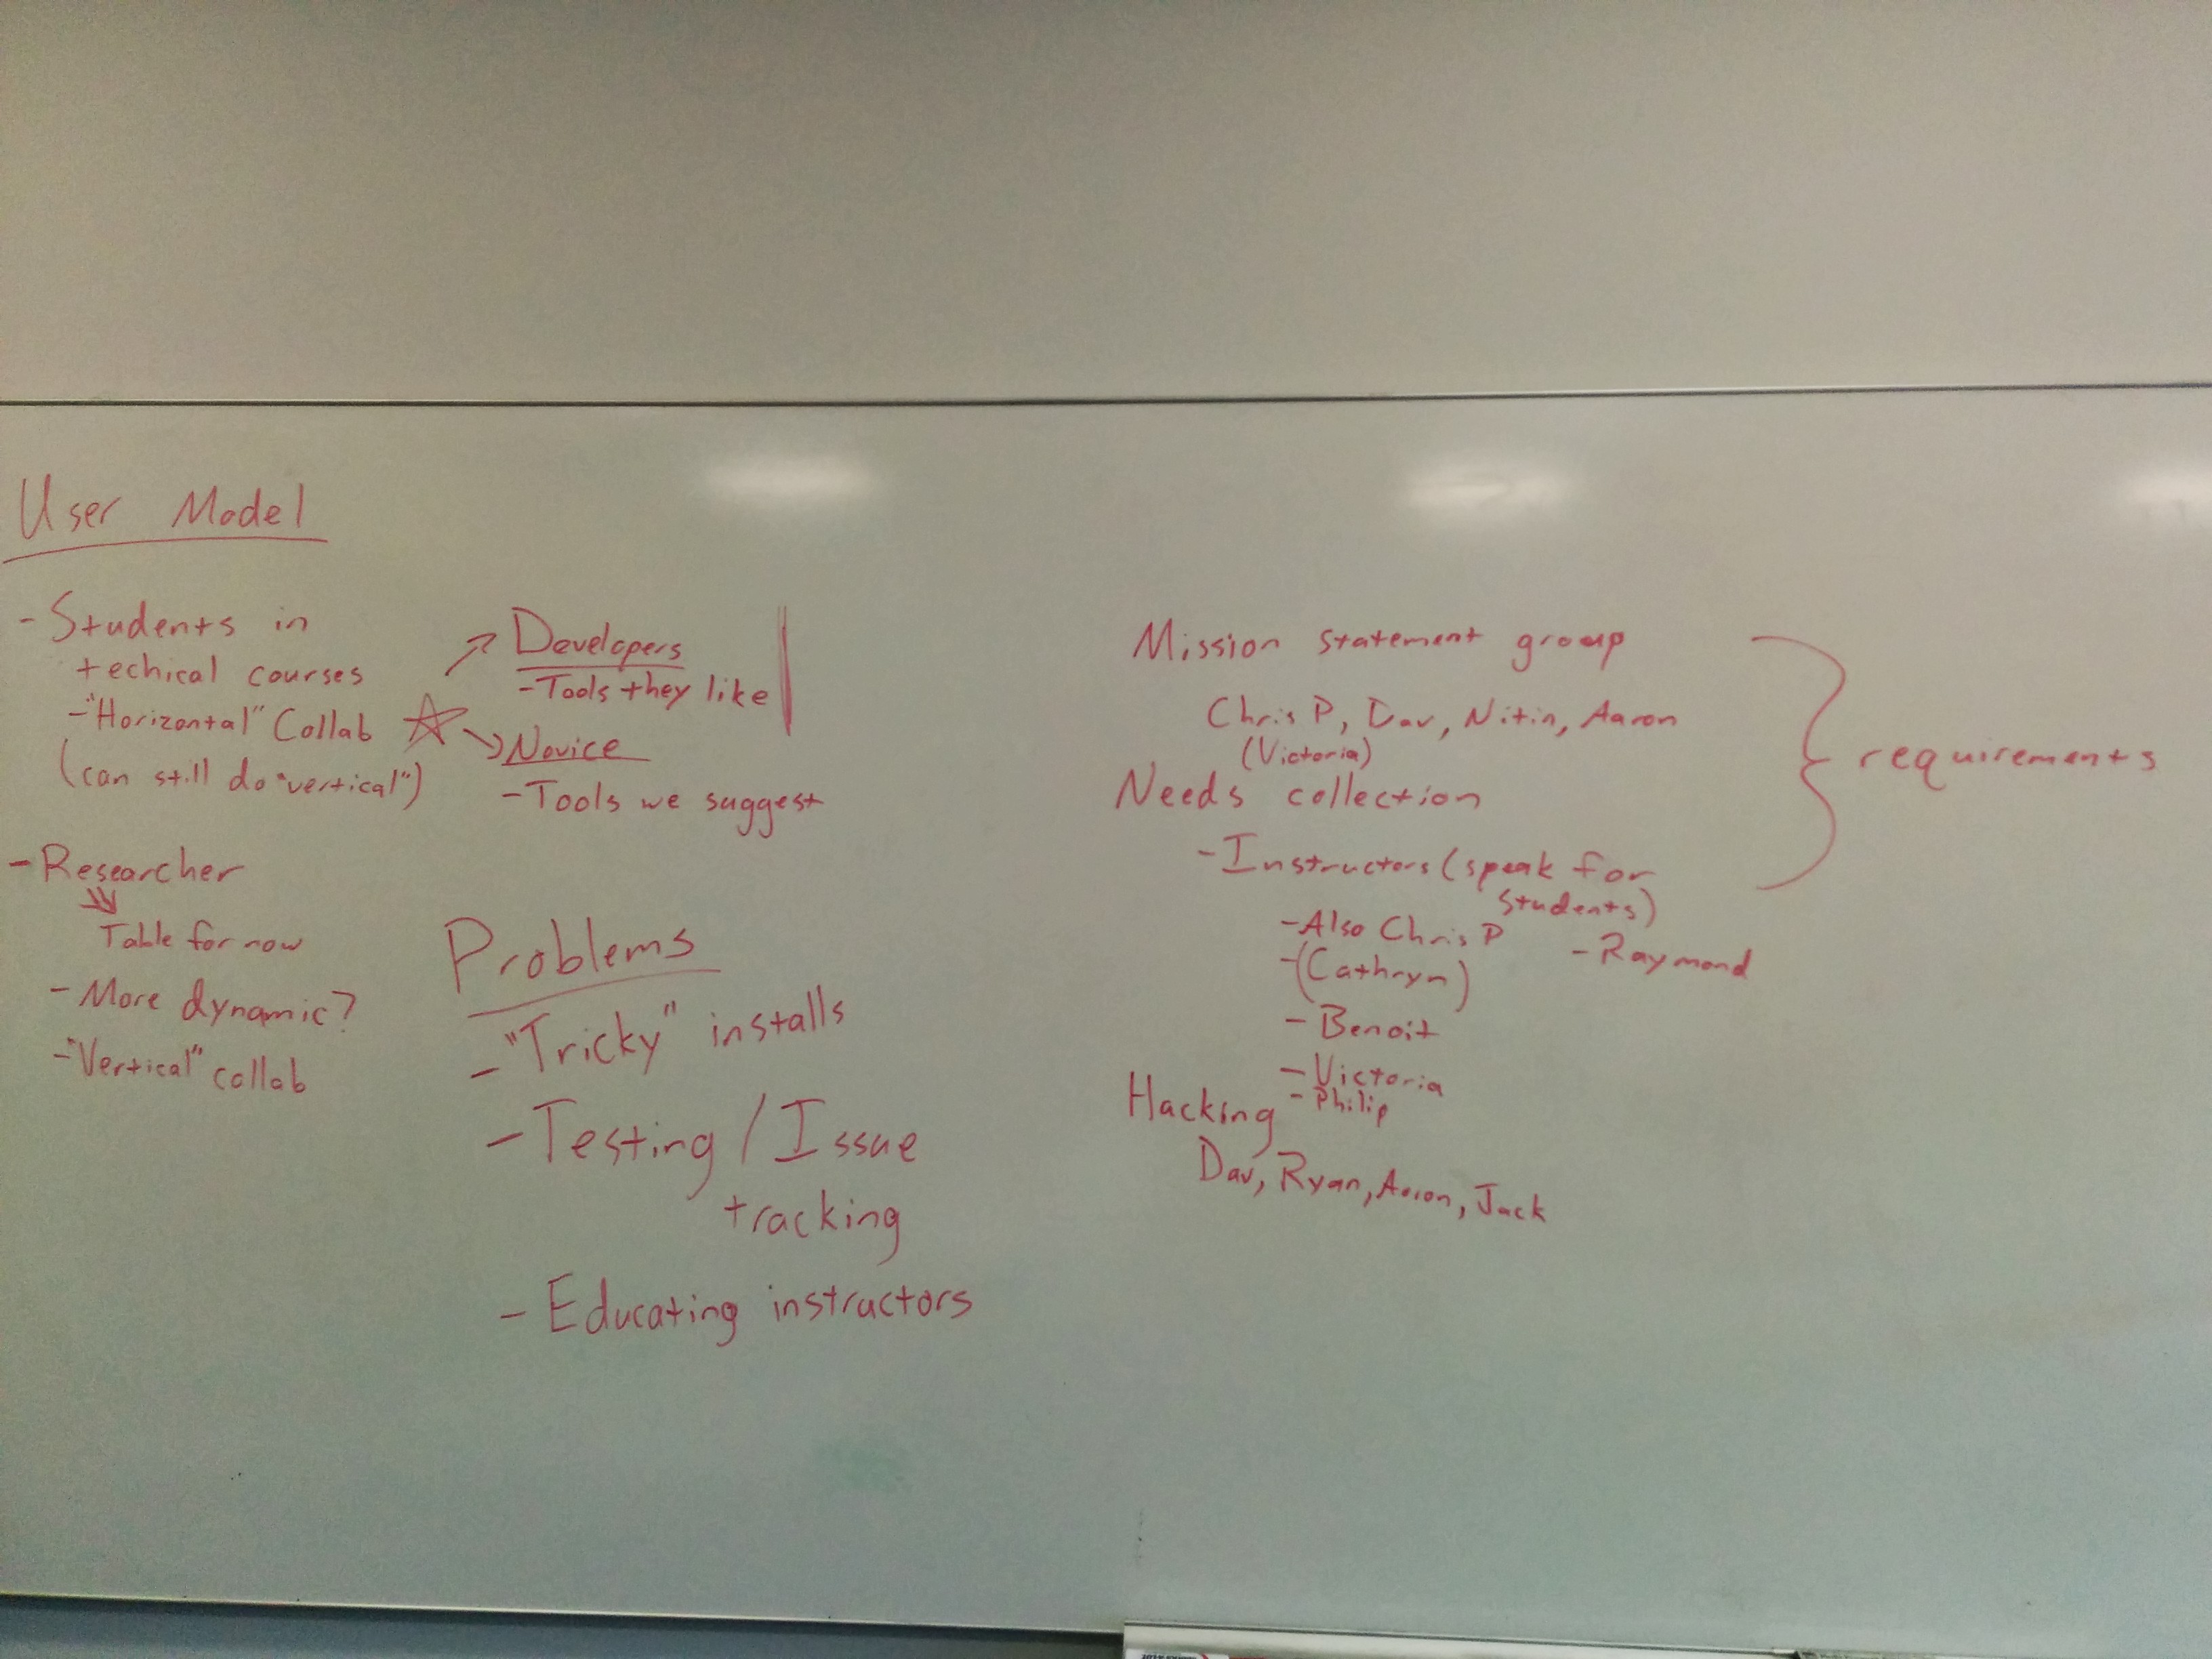 User Model
- Students in
techical courses
- "Horizontal" Collab
(can still do "vertical")
Developers
- Tools they like
Novice
- Tools we suggest
- Researcher
Table for now
- More dynamic?
- "Vertical" collab
Problems
- "Tricky" installs
- Testing / Issue
tracking
- Educating instructors
Mission statement group
Chris P, Dav, Nitin, Aaron
(Victoria)
Needs collection
- Instructors (speak for
students)
- Also Chris P
- Raymond
- (Cathryn)
- Benoit
- Victoria
- Philip
Hacking
Dav, Ryan, Aaron, Jack
requirements